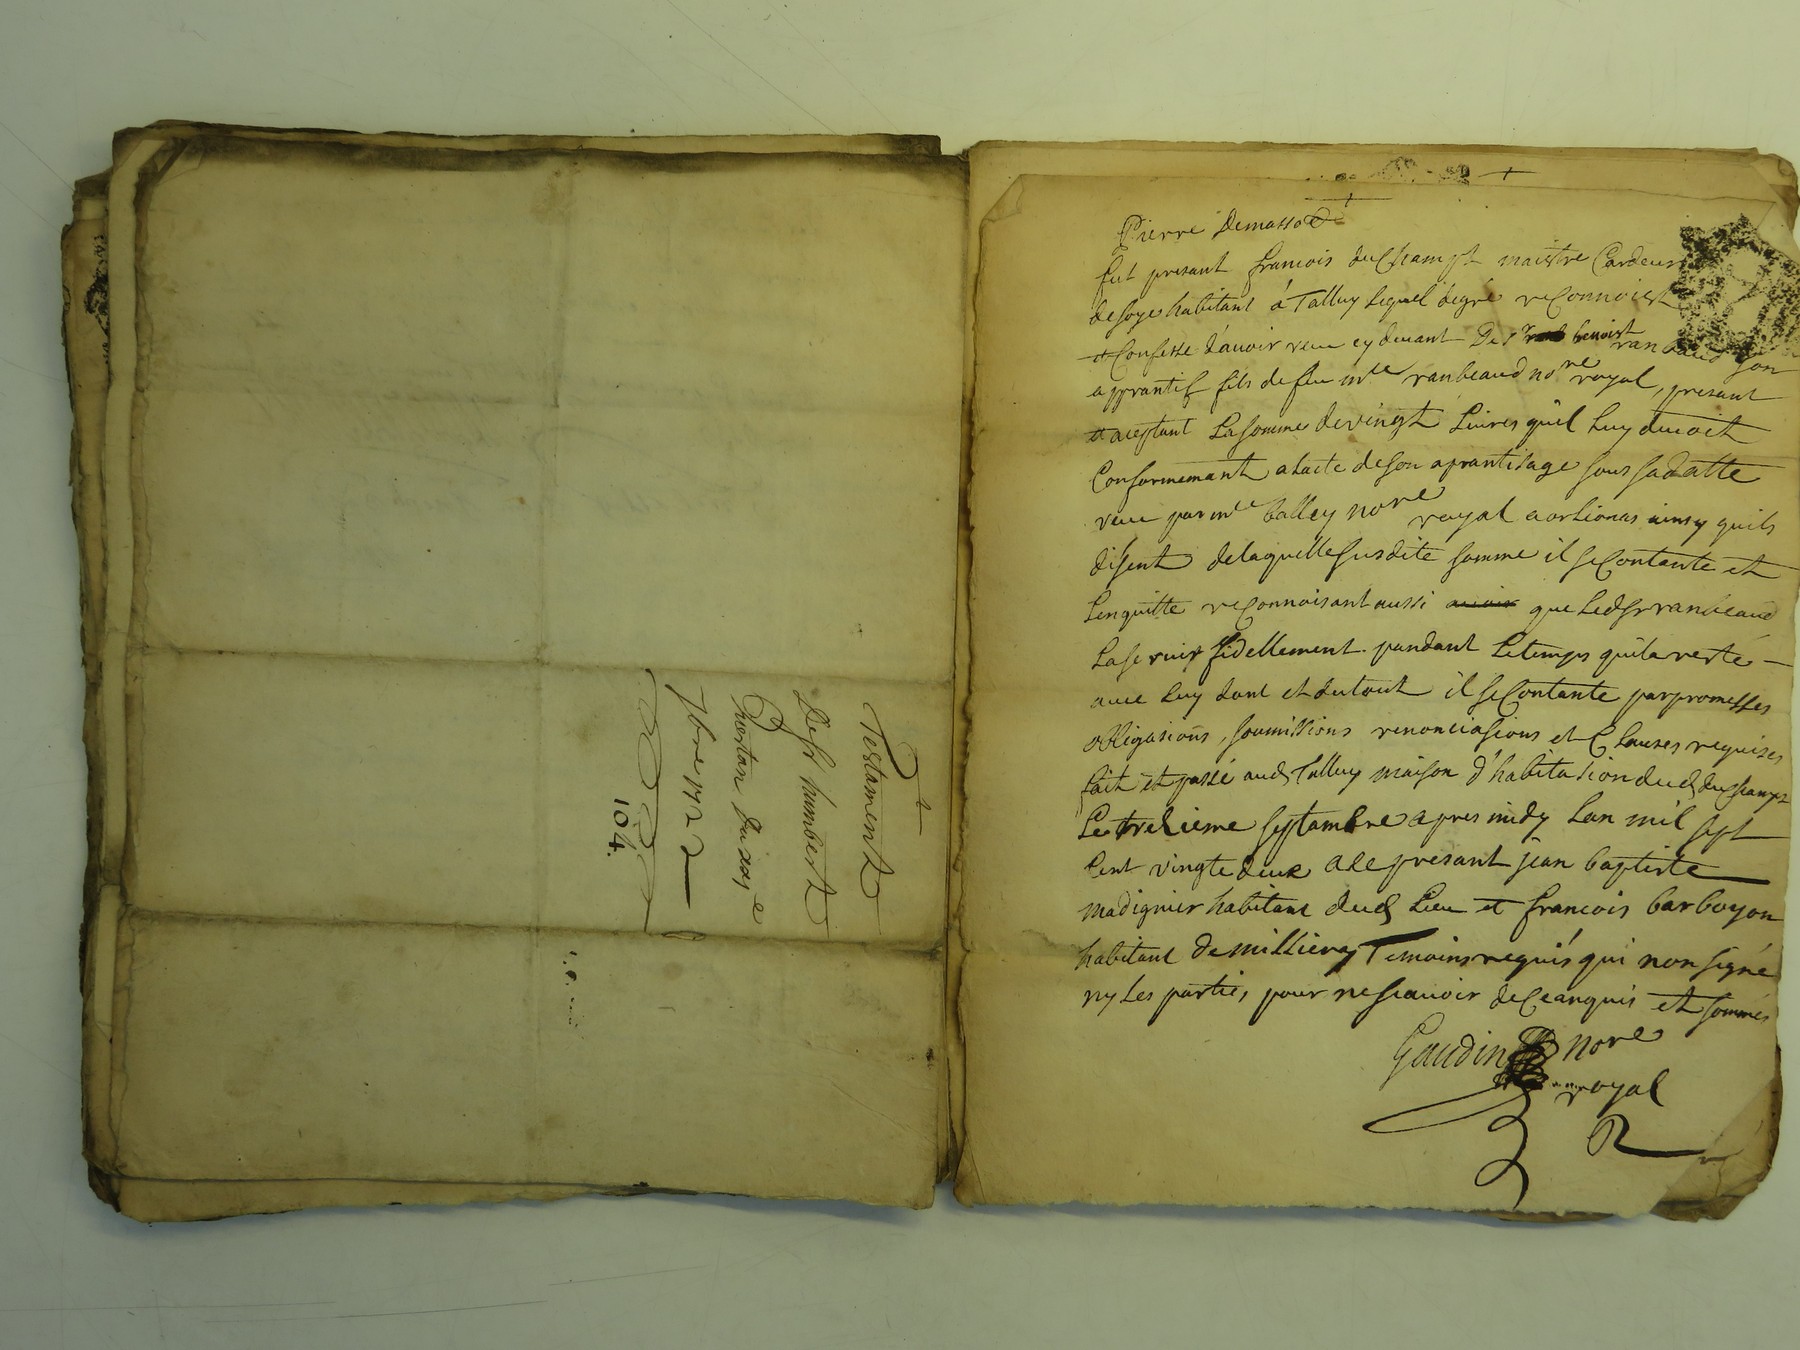 Testament
De fs humbert
7bre 1722
104.
Pierre Demasso
fut presant francois duChampt maistre Cardeur
de soye habitant á Talluy lequel de gré reConnoist
et Confesse d'auoir receu cy deuant De sr benoist ranbaud son
apprantif fils de feu me ranbeaud nore royal, present
et aceptant La somme de vingt Liures quil Luy deuoit
Conformemant a lacte de son aprantisage sous sa datte
receu par me balley nore royal a orlienas ainsy quils
disent de laquelle susdite somme il se Contante et
Lenquitte reConnoisant aussi que Led sr ranbeaud
La seruir fidellement pandant Le temps quil a resté
auec Luy dont et du tout il se Contante par promesses
obligasions, soumissions renonciasions et Clauses requises
fait et passé aud Talluy maison d'habitasion dud duchampt
Le trezieme septambre apres midy Lan mil sept
Cent vingte deux a Ce presant jean baptiste
madignier habitant dud Lieu et francois barboyon
habitant de millierey Temoins requis qui non signé
ny Les parties pour ne scauoir de Ce anquis et sommés
Gaudin nore
royal
R